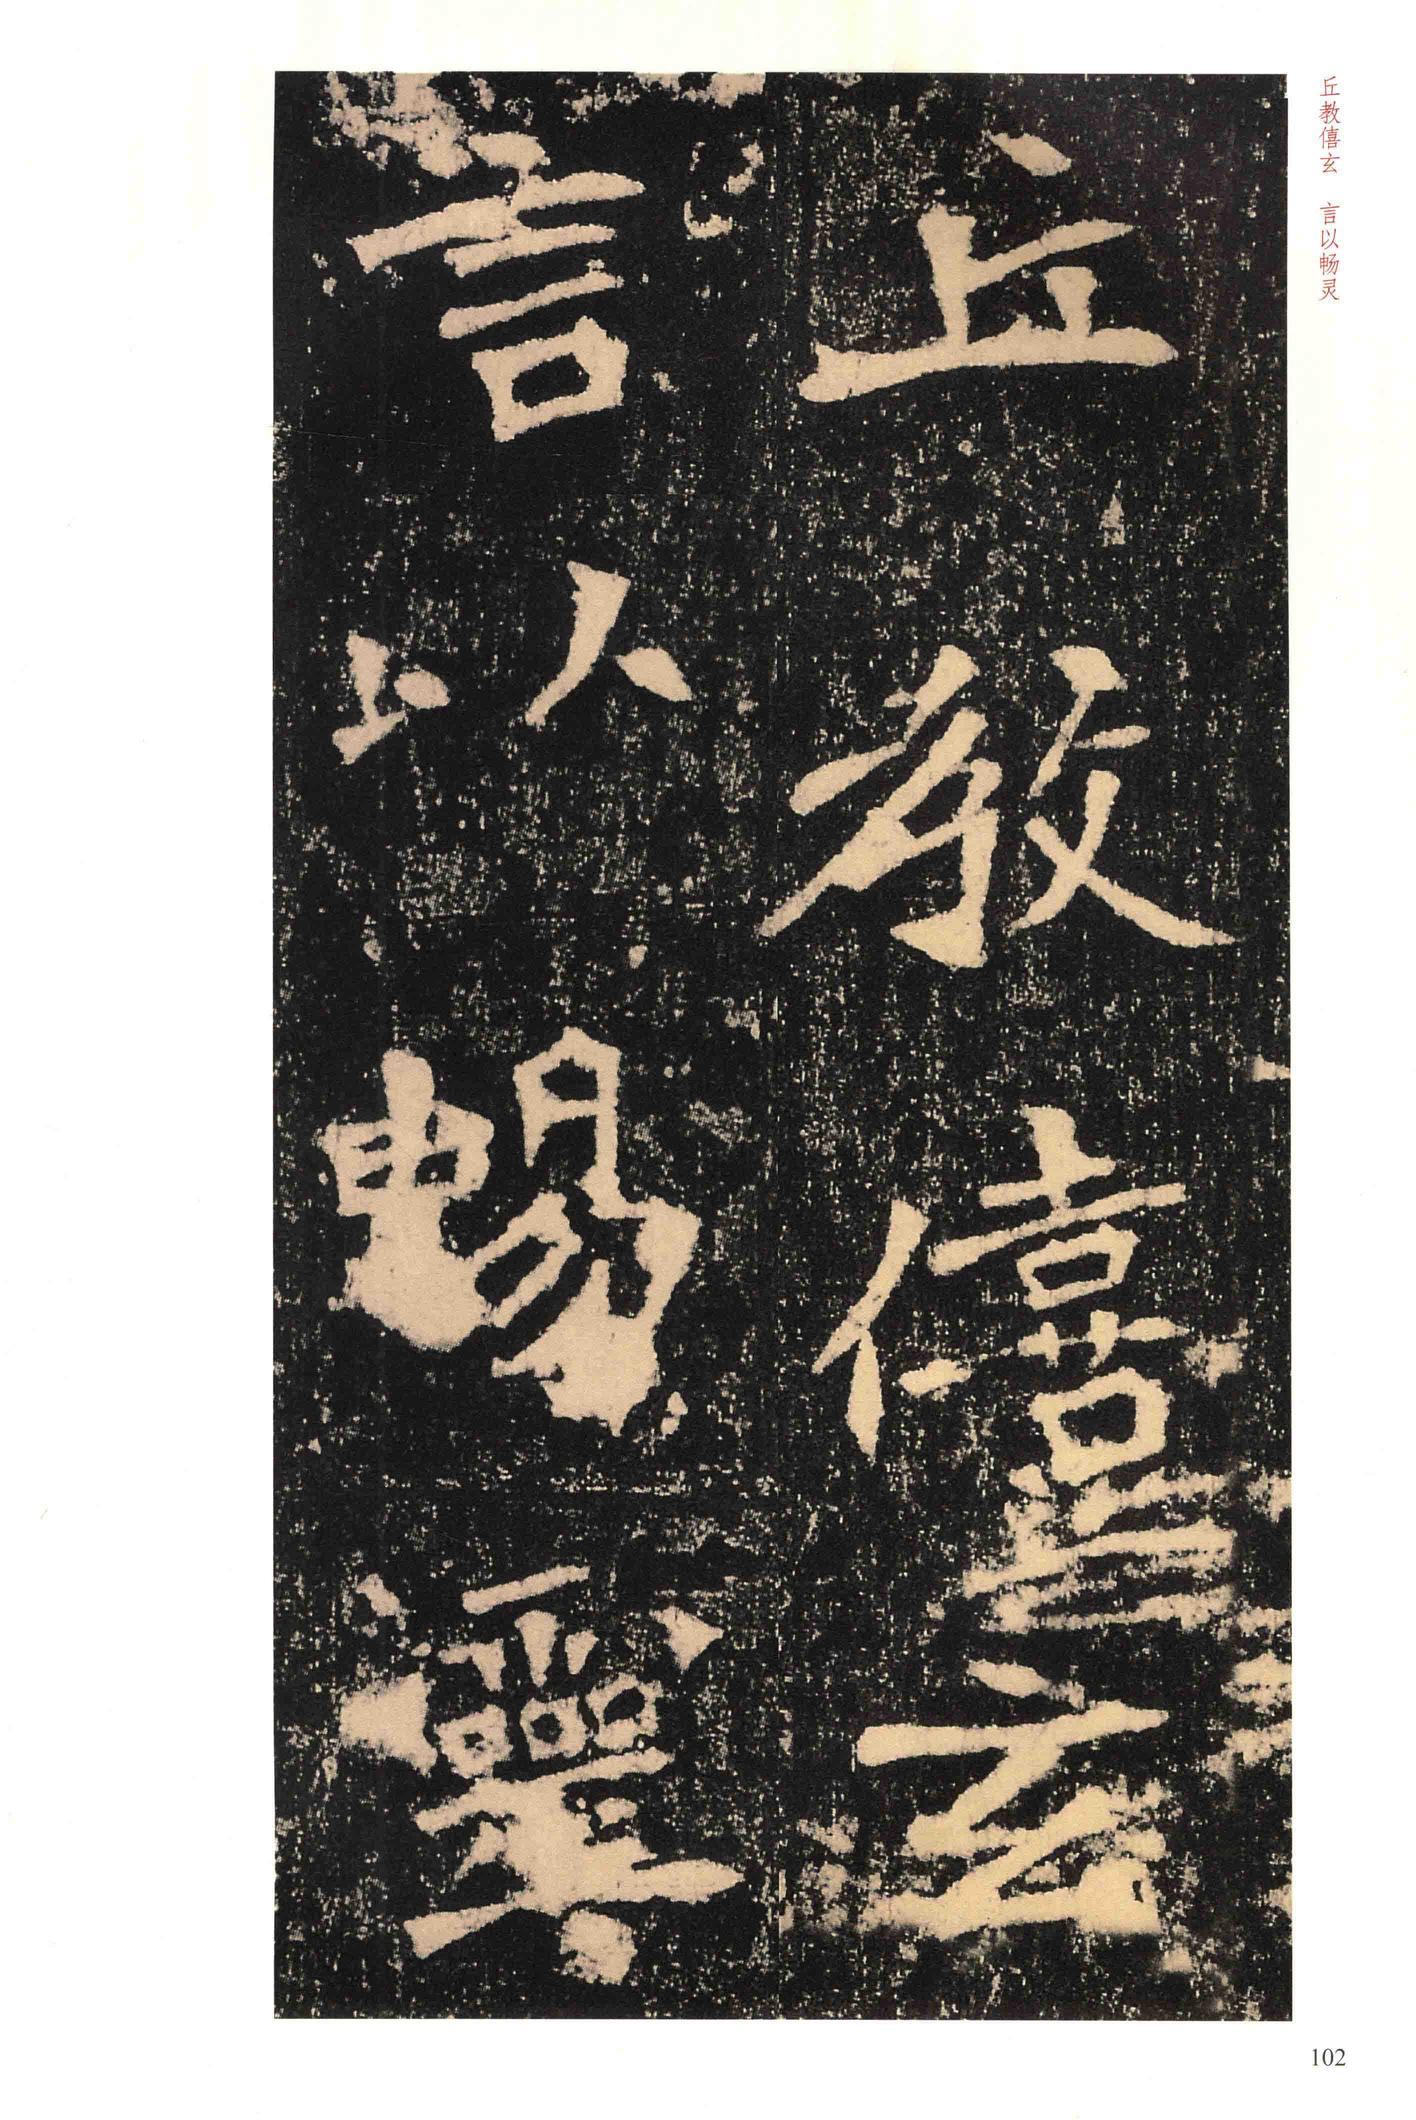 丘教僖玄 言以畅灵
丘教僖玄
言以暢靈
102